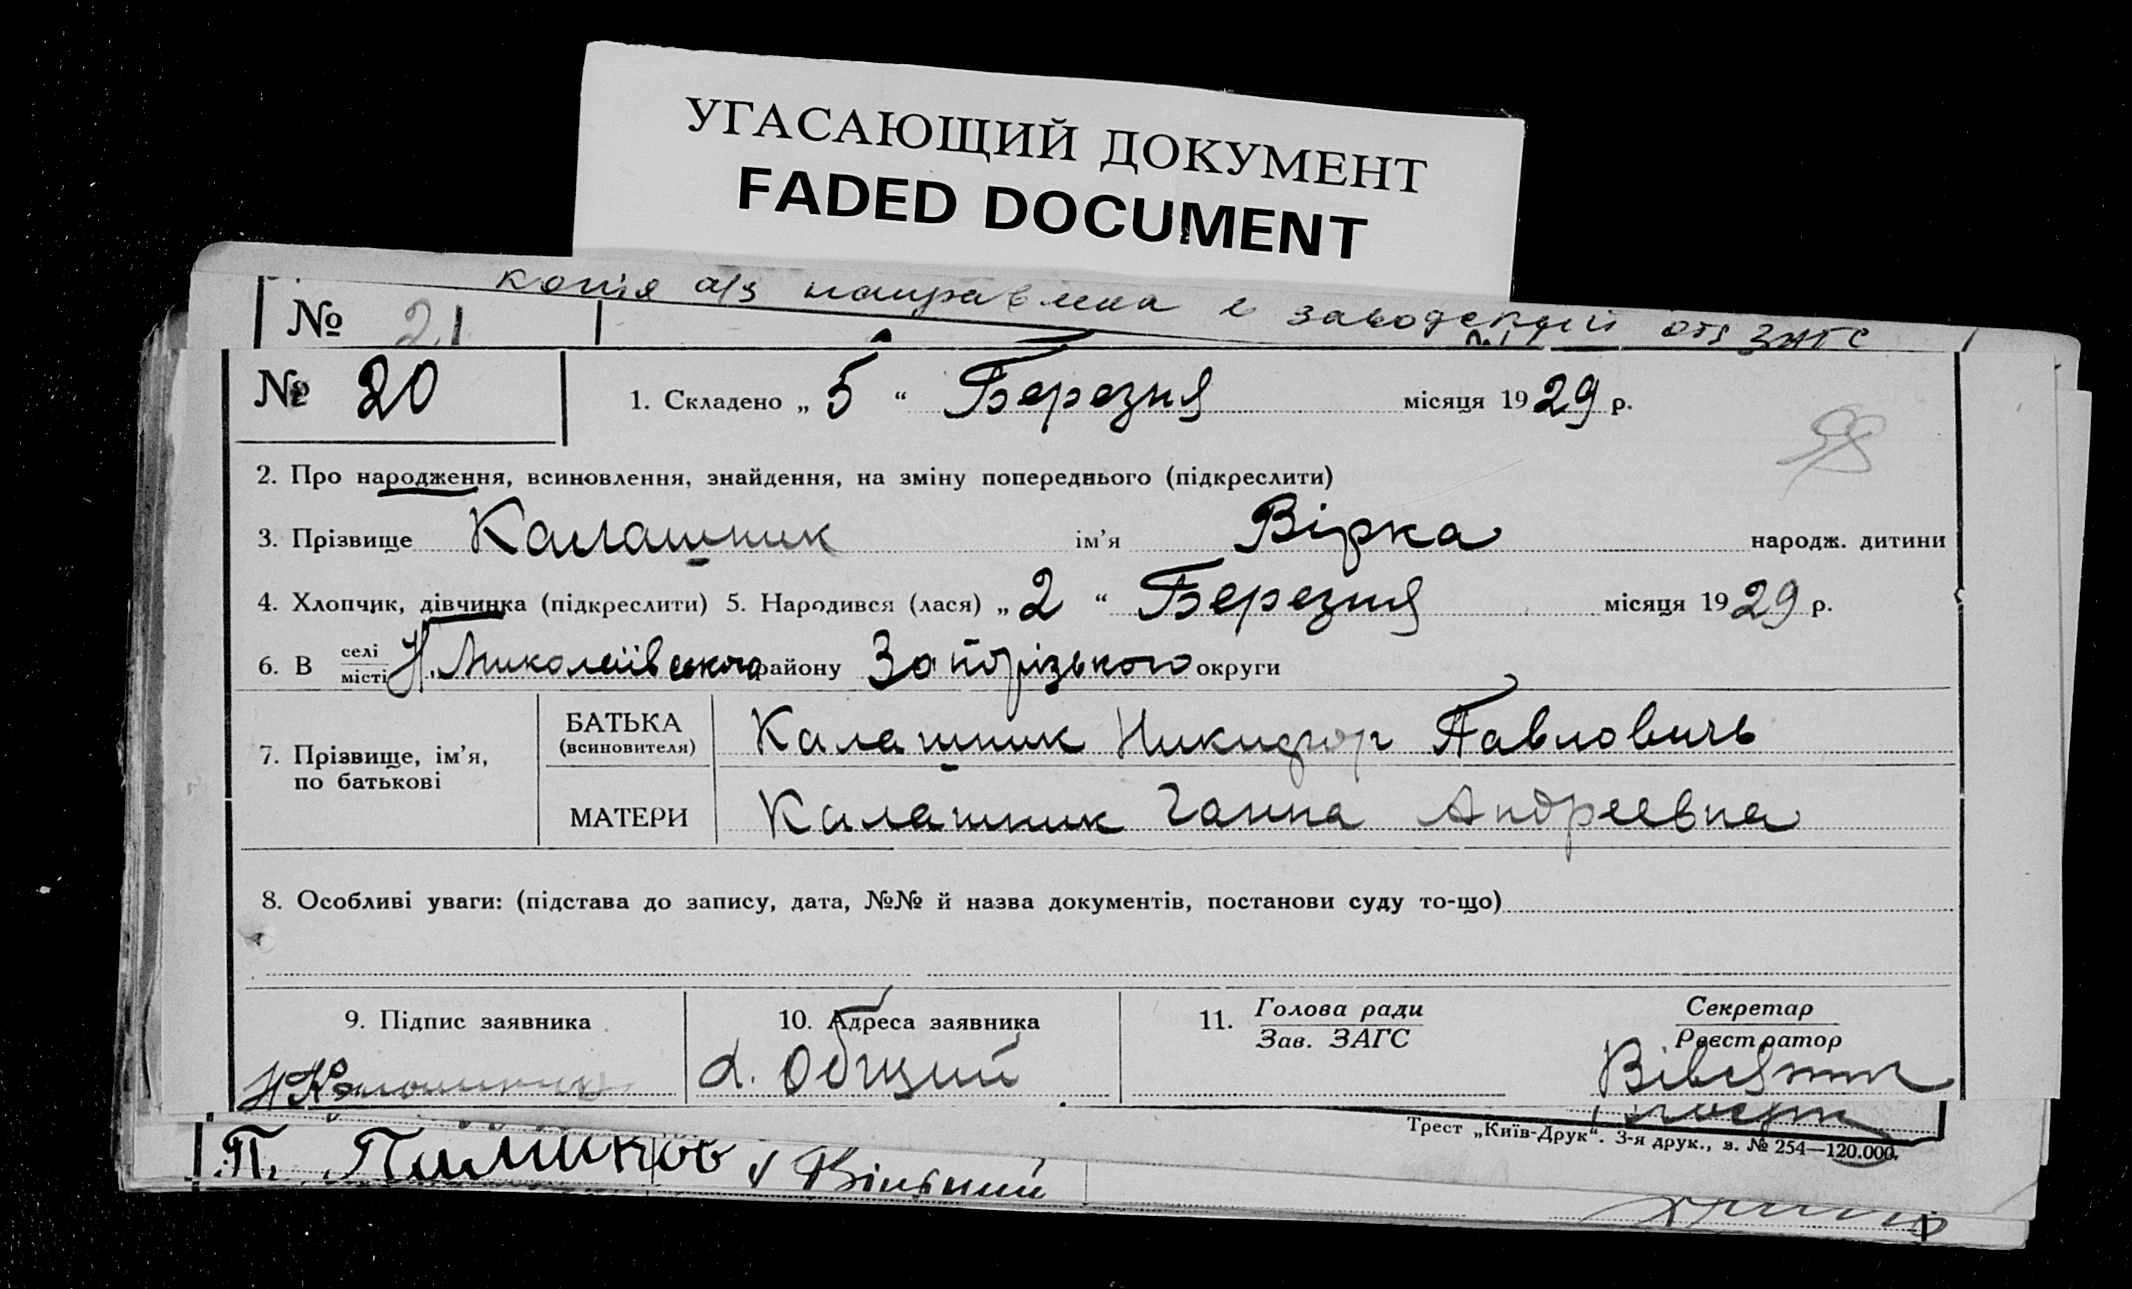 УГАСАЮЩИЙ ДОКУМЕНТ
FADED DOCUMENT
копія а/з направлена в заводський отд ЗАГС
№ 21
№ 20
1. Складено „ 5 “ Березня місяця 1929 р.
98
2. Про народження, всиновлення, знайдення, на зміну попереднього (підкреслити)
3. Прізвище Калашник ім’я Вірка народж. дитини
4. Хлопчик, дівчинка (підкреслити) 5. Народився (лася) „ 2 “ Березня місяця 1929 р.
6. В селі місті Н. Миколаївського району Запорізького округи
7. Прізвище, ім’я, по батькові
БАТЬКА (всиновителя) Калашник Никифор Павловичь
МАТЕРИ Калашник Ганна Андреевна
8. Особливі уваги: (підстава до запису, дата, №№ й назва документів, постанови суду то-що)
9. Підпис заявника
10. Адреса заявника
11. Голова ради Зав. ЗАГС
Секретар Реєстратор
Н Калашник
х. Общий
Трест „Київ-Друк“. 3-я друк., з. № 254—120.000.